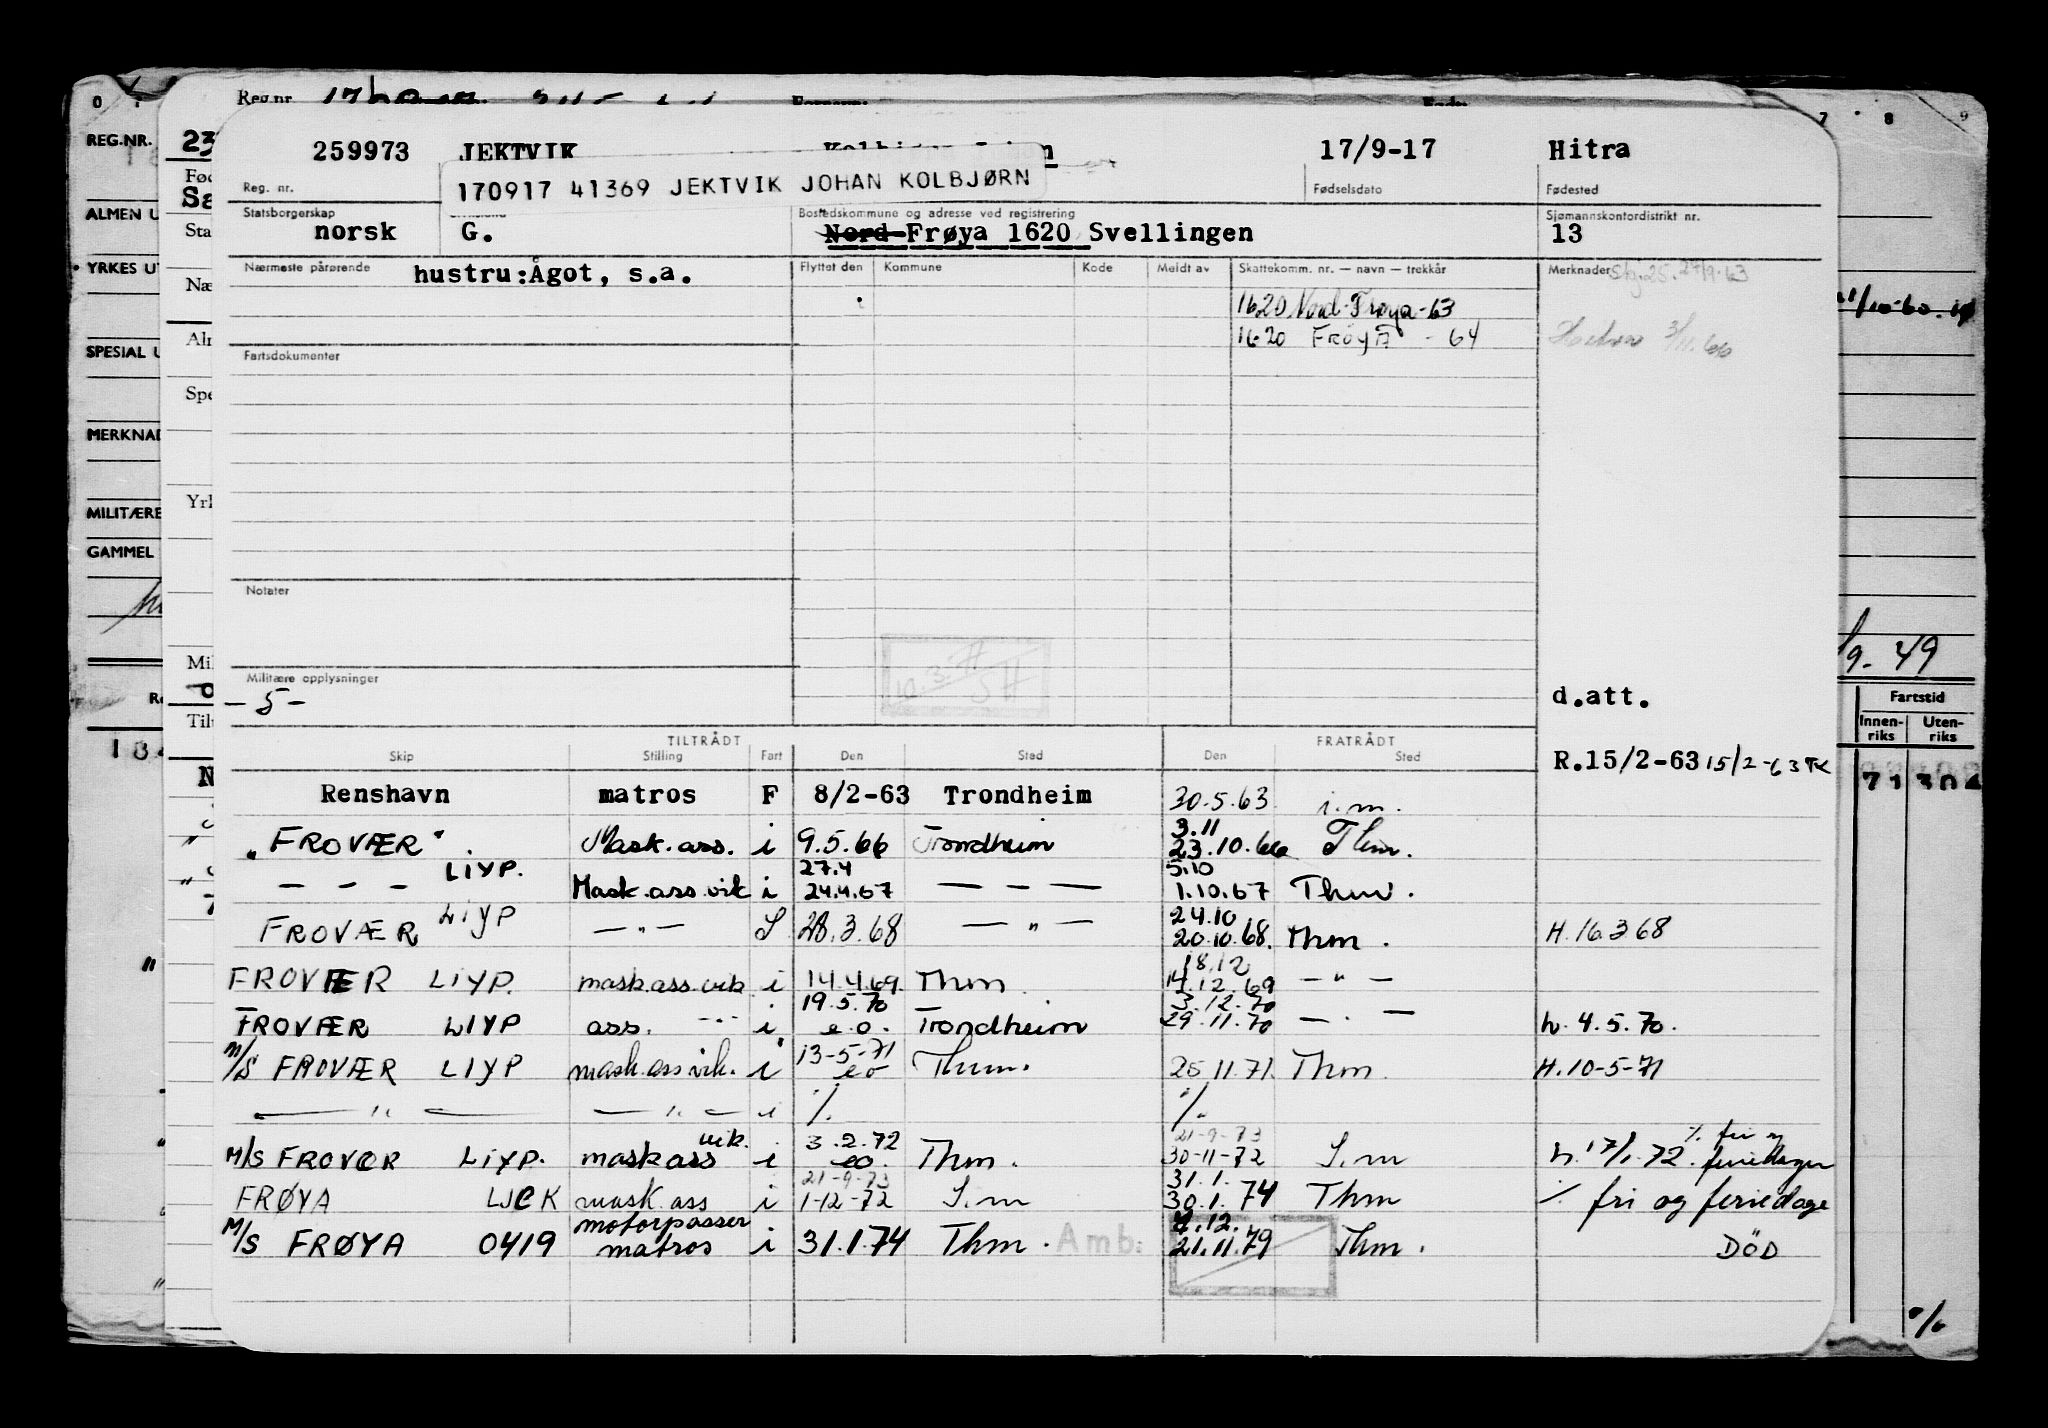 Reg.nr.
REG.NR.
ALMEN U
YRKES U
SPESIAL U
MERKNAD
MILITÆRE
GAMMEL
259973 JEKTVIK 17/9-17 Hitra
Reg. nr. 170917 41369 JEKTVIK JOHAN KOLBJØRN Fødselsdato Fødested
Statsborgerskap Bostedskommune og adresse ved registrering Sjømannskontordistrikt nr.
norsk G. Nord-Frøya 1620 Svellingen 13
Nærmeste pårørende hustru:Ågot, s.a. Flyttet den Kommune Kode Meldt av Skattekomm. nr. — navn — trekkår Merknader
1620 Nord-Frøya-63
1620 FRØYA - 64
Fartsdokumenter
Notater
Militære opplysninger
- 5 -
d.att.
R.15/2-63 15/2-63
TILTRÅDT FRATRÅDT
Skip Stilling Fart Den Sted Den Sted
Renshavn matros F 8/2-63 Trondheim 30.5.63 i.m.
3.11
"FROVÆR" Mask.ass. i 9.5.66 Trondheim 23.10.66 Thm.
LIYP. 27.4 5.10
— — — Mask.ass.vik i 24.4.67 — — — 1.10.67 Thm.
LIYP 24.10
FROVÆR — " — S 28.3.68 — " — 20.10.68. Thm. H.16.3.68
18.12
FROVÆR LIYP. mask.ass.vik. i 14.4.69. Thm 14.12.69 — " —
19.5.70 3.12.70
FROVÆR LIYP ass. — " — i e.o. Trondheim 29.11.70 — " — h.4.5.70.
13-5-71
M/S FROVÆR LIYP mask.ass vik. i eo Thm. 25.11.71. Thm. H.10-5-71
— " — — " — i ./. ./.
vik. 3.2.72 21-9-73 ./. fri og
M/S FROVÆR LIYP. mask ass i eo. Thm. 30-11-72 S.m h.17/1-72. feriedager
21-9-73 31.1.
FRØYA LJCK mask ass i 1-12-72 S.m 30.1.74 Thm ./. fri og feriedage
motorpasser 4.12.
M/S FRØYA 0419 matros i 31.1.74 Thm. Amb. 21.11.79 Thm. DÖD
9.49
Fartstid
Innen- Uten-
riks riks